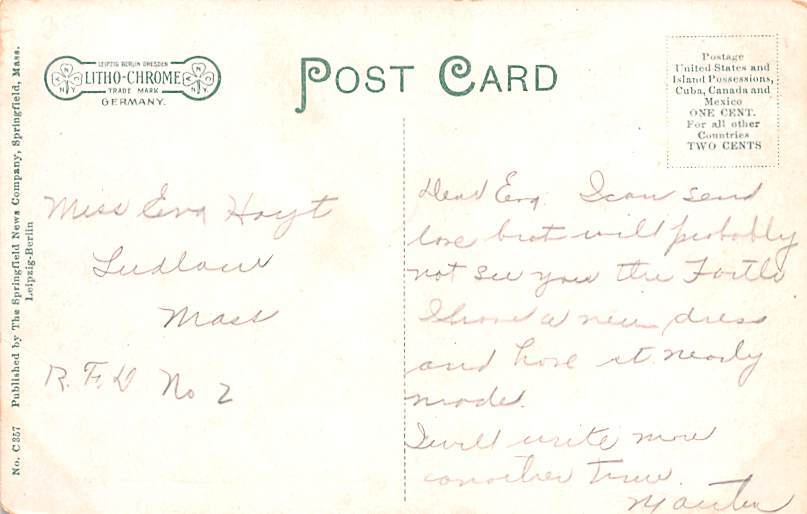 No. C 357 Published by The Springfield News Company, Springfield, Mass.
Leipzig-Berlin
LEIPZIG BERLIN DRESDEN
LITHO-CHROME
TRADE MARK
GERMANY.
N C N Y
N C N Y
POST CARD
Postage
United States and
Island Possessions,
Cuba, Canada and
Mexico
ONE CENT.
For all other
Countries
TWO CENTS
Miss Eva Hoyt
Ludlow
Mass
R. F. D No 2
Dead Eva. I can send
love but will probably
not see you the
I have a new dress
and have it nearly
made.
I will write more
another time.